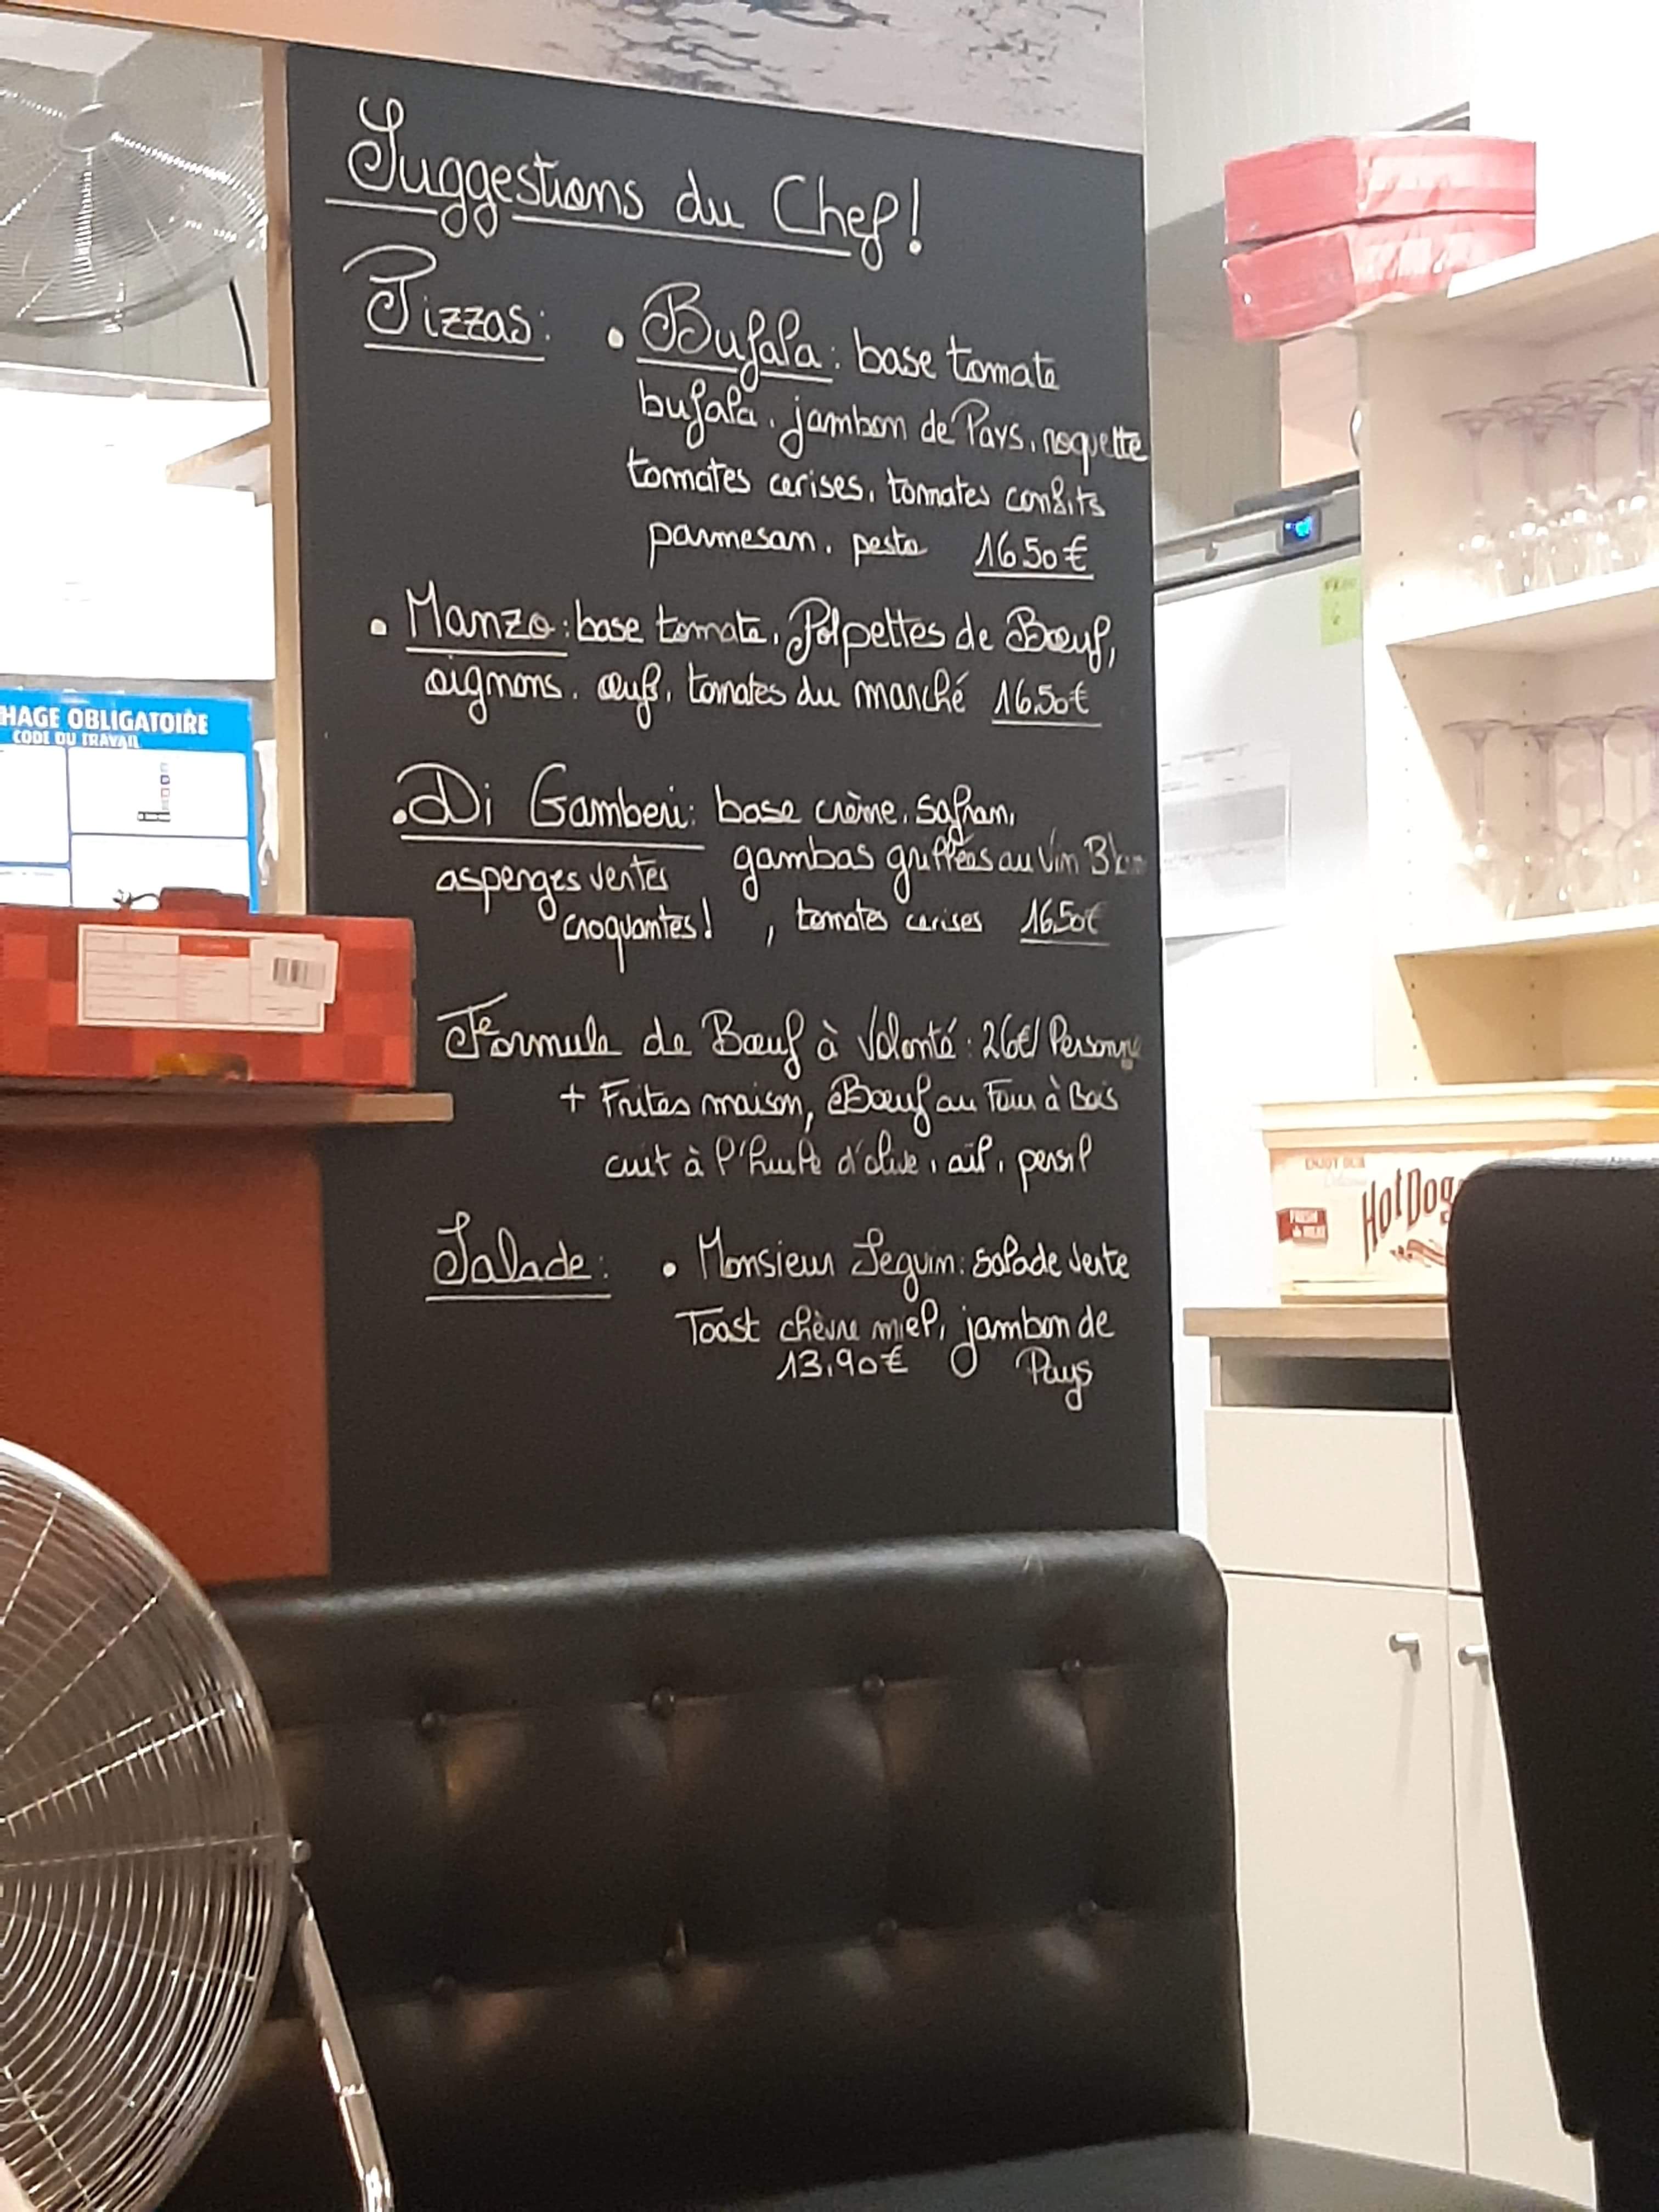 Suggestions du Chef!
Pizzas: • Bufala: base tomate
bufala, jambon de Pays, roquette
tomates cerises, tomates confits
parmesan, pesto 16.50€
• Manzo: base tomate, Polpettes de Bœuf,
oignons, œuf, tomates du marché 16.50€
• Di Gamberi: base crème, safran,
gambas griffées au Vin Blanc
asperges vertes
croquantes! , tomates cerises 16.50€
Formule de Bœuf à Volonté: 26€/Personne
+ Frites maison, Bœuf au Four à Bois
cuit à l'huile d'olive, ail, persil
Salade: • Monsieur Seguin: salade verte
Toast chèvre miel, jambon de
13,90€ Pays
HAGE OBLIGATOIRE
CODE DU TRAVAIL
ENJOY OUR
Delicious
Hot Dog